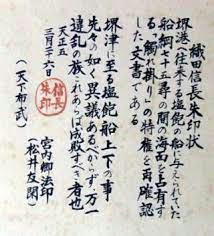 織田信長朱印状
堺港へ往来する塩飽の船に与えられていた
船綱七十五尋の間の海面を占有す
る「触れ掛り」の特権を再確認
した文書である
堺津に至る塩飽船上下の事
先々の如く異議あるべからず万一
違乱の族これあらば成敗すべき者也
天正五
三月二十六日
信長
朱印
宮内卿法印
（松井友閑）
（天下布武）